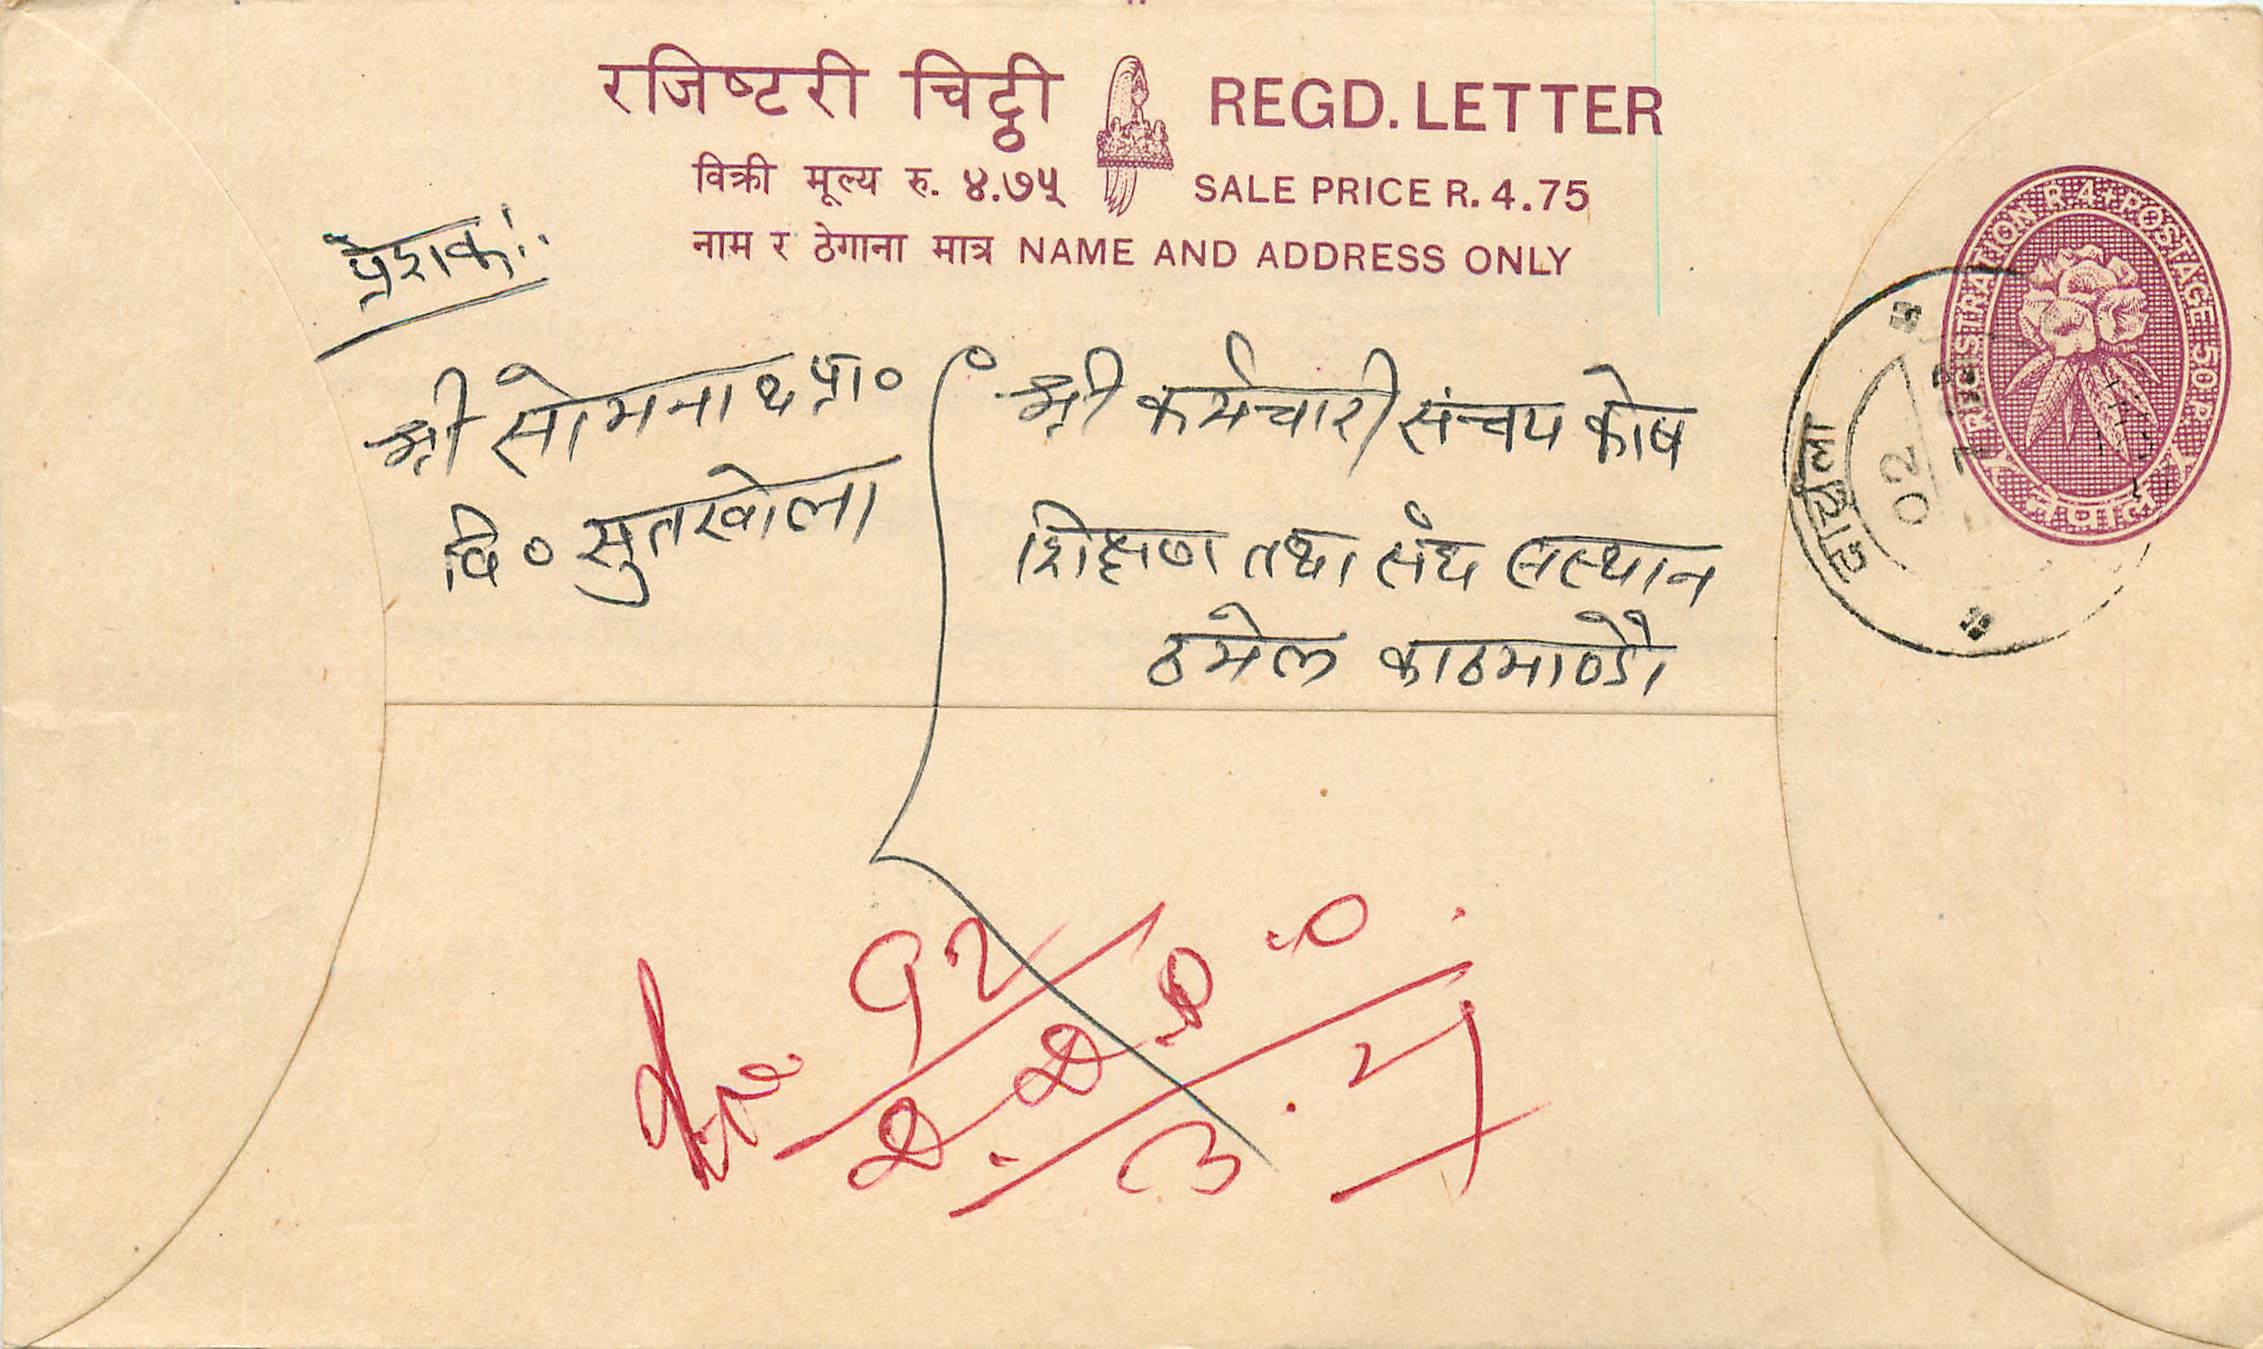 रजिष्टरी चिट्ठी REGD. LETTER
विक्री मूल्य रु. ४.७५ SALE PRICE R. 4.75
नाम र ठेगाना मात्र NAME AND ADDRESS ONLY
REGISTRATION R. 4 + POSTAGE 50 P.
नेपाल
दार्चुला
प्रेशक:
श्री सोमनाथ प्रा०
वि० सुतखोला
श्री कर्मचारी संन्चय कोष
शिक्षण तथा संघ सस्थान
ठमेल काठमाण्डौ
१२